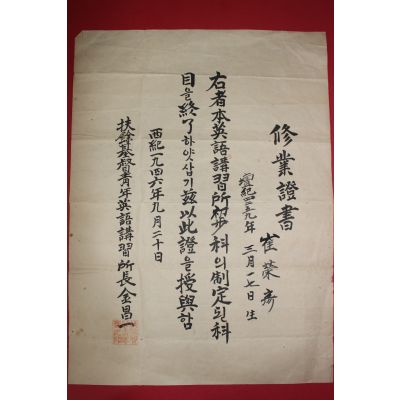 修業證書
崔榮彦
檀紀四二五九年 三月一七日生
右者本英語講習所初步科의制定된科
目을終了하얏삽기玆以此證을授與함
西紀一九四六年九月二十日
扶餘基督靑年英語講習所長金昌一